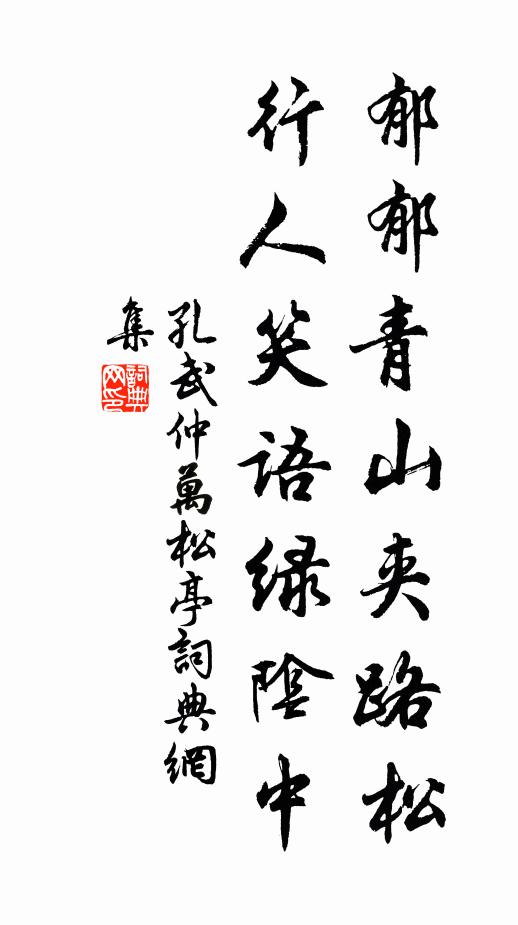 郁郁青山夹路松
行人笑语绿陰中
孔武仲萬松亭詞典網
集
詞典網印